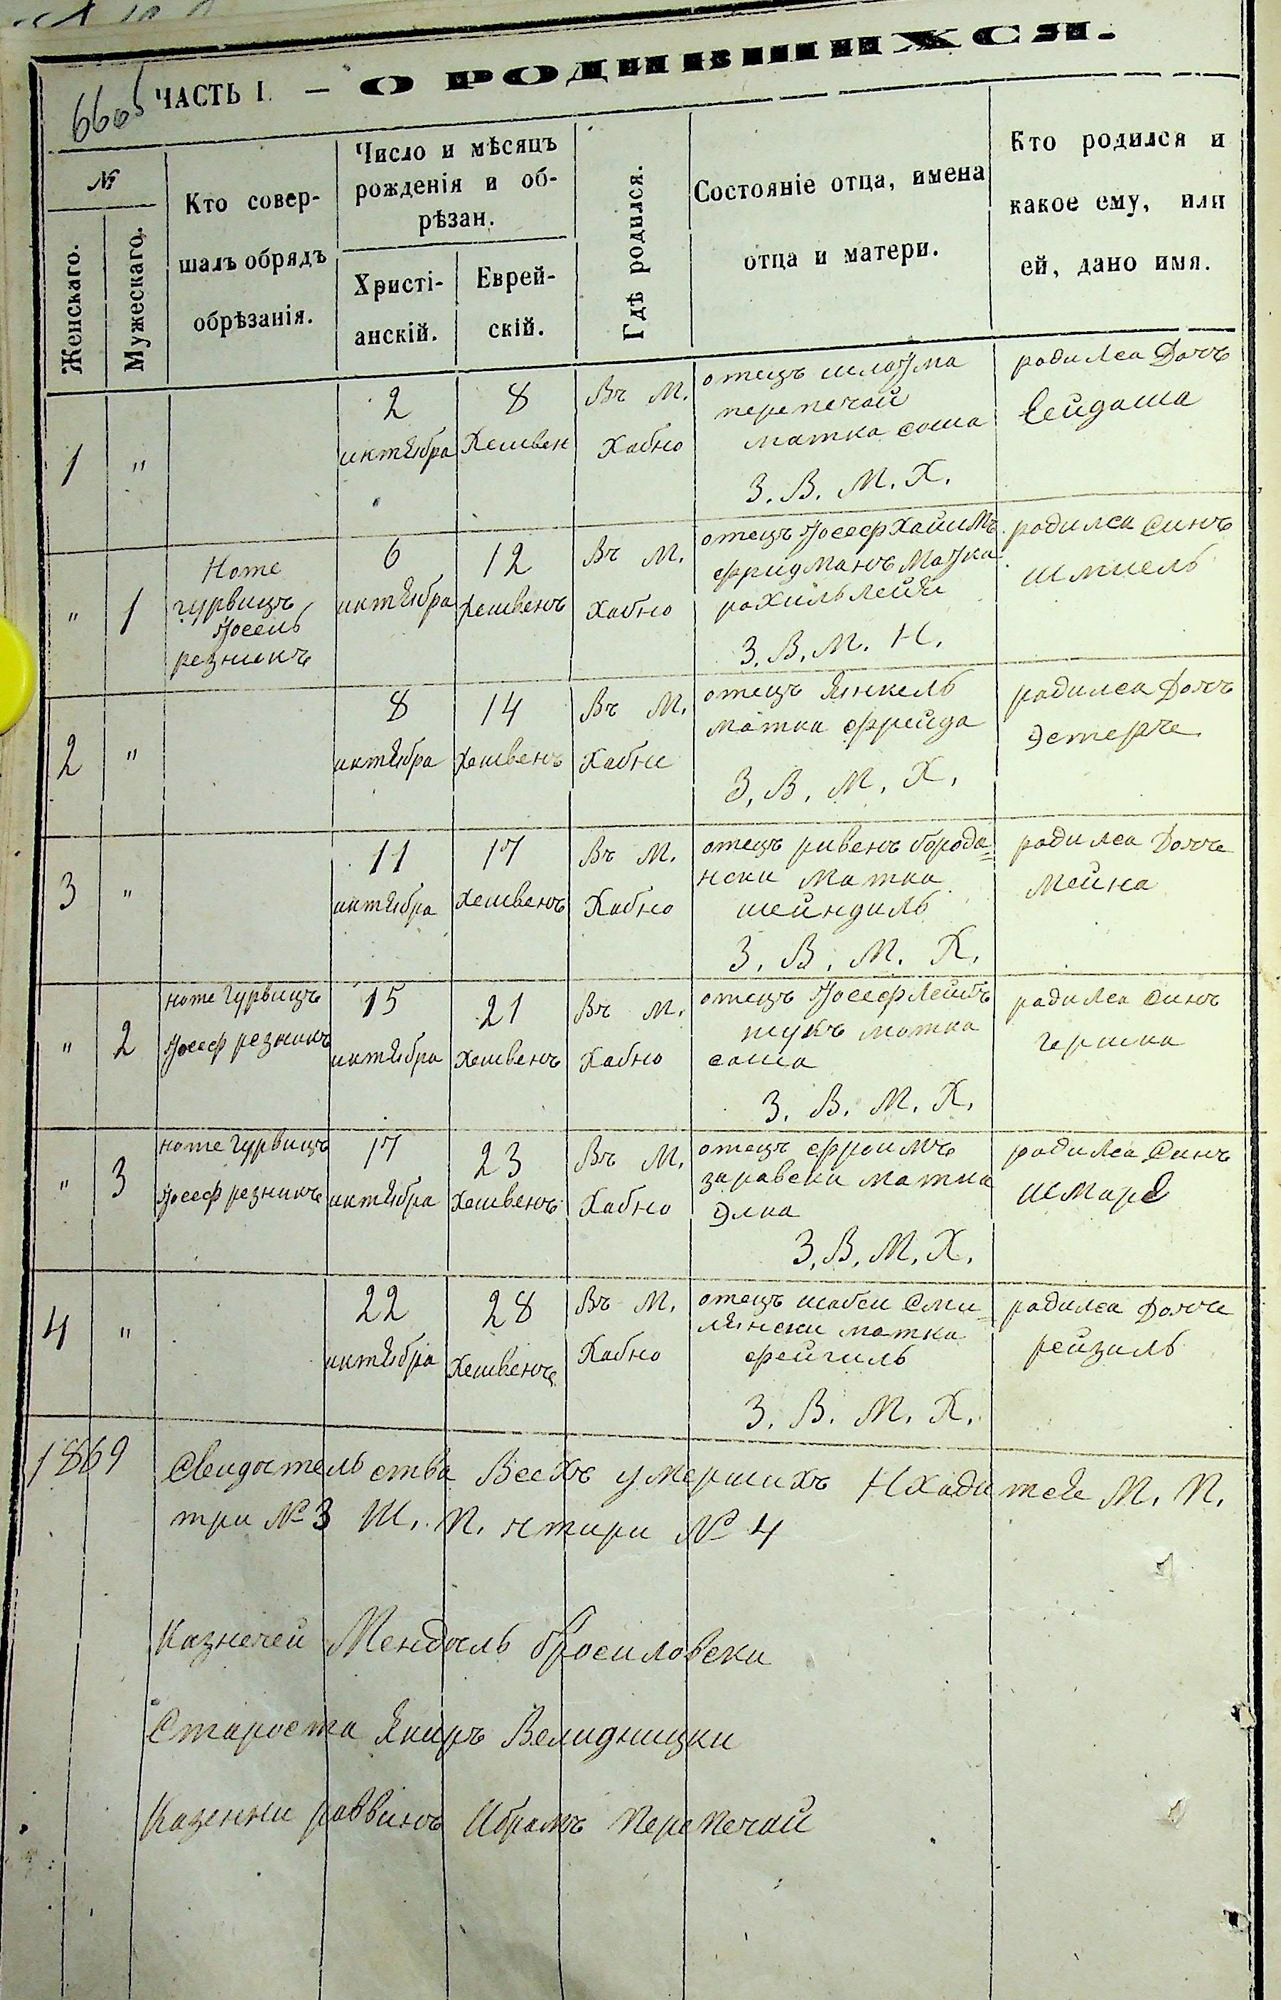 6605
ЧАСТЬ I. — О РОДИВШИХСЯ.
№
Женскаго.
Мужескаго.
Кто совер-
шалъ обрядъ
обрѣзанія.
Число и мѣсяцъ
рожденія и об-
рѣзан.
Христі-
анскій.
Еврей-
скій.
Гдѣ родился.
Состояніе отца, имена
отца и матери.
Кто родился и
какое ему, или
ей, дано имя.
1
"
2
октября
8
Хешвен
Въ М.
Хабно
отецъ
перепечай
матка соша
З. В. М. Х.
родилса Дочъ
Сейдаша
"
1
Ноте
гурвицъ
Йосель
резникъ
6
октября
12
Хешвенъ
Въ М.
Хабно
отецъ Йосеф Хаимъ
фридманъ Матка
рахиль лейя
З. В. М. Н.
родилса синъ
шмиель
2
"
8
октября
14
Хешвенъ
Въ М.
Хабно
отецъ Янкель
матка фрейда
З. В. М. Х.
родилса Дочъ
Эстерче
3
"
11
октября
17
Хешвенъ
Въ М.
Хабно
отецъ ривенъ бороди=
нски матка
шейндиль
З. В. М. Х.
родилса Дочъ
мейна
"
2
ноте гурвицъ
Йосеф резникъ
15
октября
21
Хешвенъ
Въ М.
Хабно
отецъ Йосеф Лейбъ
жукъ матка
соша
З. В. М. Х.
родилса синъ
гершка
"
3
ноте гурвицъ
Йосеф резникъ
17
октября
23
Хешвенъ
Въ М.
Хабно
отецъ фроимъ
заравски матка
Элка
З. В. М. Х.
родилса синъ
шмаря
4
"
22
октября
28
Хешвенъ
Въ М.
Хабно
отецъ шабси сми-
лянски матка
фейгиль
З. В. М. Х.
родилса Дочъ
рейзиль
1869 Свидотельства Всехъ умершихъ Нходится М. П.
три № 3 Ш. П. чтири № 4
Казначей Мендель бросиловски
Староста Якиръ Велидницки
Казенни раввинъ Абрамъ Перепечай